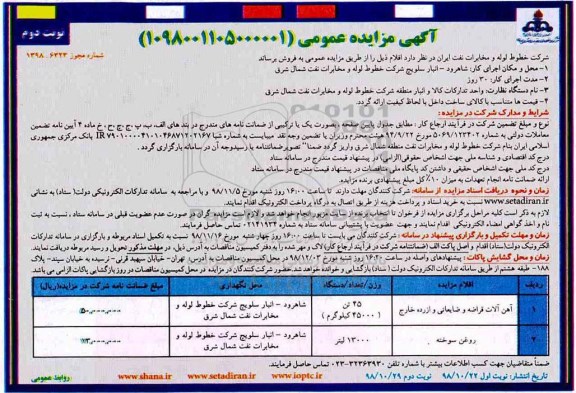 آگهی مزایده عمومی (۱۰۹۸۰۰۱۱۰۵۰۰۰۰۰۱)
نوبت دوم
شماره مجوز ۱۳۹۸.۶۳۲۳
شرکت خطوط لوله و مخابرات نفت ایران در نظر دارد اقلام ذیل را از طریق مزایده عمومی به فروش برساند
۱- محل و مکان اجرای کار: شاهرود - انبار سلویچ شرکت خطوط لوله و مخابرات نفت شمال شرق
۲- مدت اجرای کار: ۳۰ روز
۳- نام دستگاه نظارت: واحد تدارکات کالا و انبار منطقه شرکت خطوط لوله و مخابرات نفت شمال شرق
۴- قیمت ها متناسب با کالای ساخت داخل با لحاظ کیفیت ارائه گردد.
شرایط و مدارک شرکت در مزایده:
نوع و مبلغ تضمین شرکت در فرآیند ارجاع کار: مطابق جدول پایین صفحه - بصورت یک یا ترکیبی از ضمانت نامه های مندرج در بند های الف، ب، پ، ج، چ، ح، خ ماده ۴ آیین نامه تضمین
معاملات دولتی به شماره ۱۲۳۴۰۲/ت۵۰۶۵۹ه مورخ ۹۴/۹/۲۲ هیئت محترم وزیران یا تضمین وجه نقد میبایست به شماره شبا IR بانک مرکزی جمهوری
اسلامی ایران بنام شرکت خطوط لوله و مخابرات نفت منطقه شمال شرق واریز گردد ضمنا" تصویر ضمانتنامه یا رسید وجه آن در سامانه بارگزاری گردد.
درج کد اقتصادی و شناسه ملی جهت اشخاص حقوقی (الزامی) در پیشنهاد قیمت مندرج در سامانه ستاد
درج کدملی جهت اشخاص حقیقی و داشتن کد پایگاه ملی مناقصات در پیشنهاد قیمت مندرج در سامانه ستاد
ارائه ضمانت نامه انجام تعهدات به میزان ۱۰٪ کل مبلغ پیشنهادی برنده مزایده
زمان و نحوه دریافت اسناد مزایده از سامانه: شرکت کنندگان مهلت دارند تا ساعت ۱۶:۰۰ روز شنبه مورخ ۹۸/۱۱/۵ و با مراجعه به سامانه تدارکات الکترونیکی دولت( ستاد) به نشانی
www.setadiran.ir نسبت به خرید اسناد و پرداخت هزینه از طریق اتصال به درگاه پرداخت الکترونیک اقدام نمایند.
لازم به ذکر است کلیه مراحل برگزاری مزایده از فراخوان تا
نام و اخذ گواهی امضاء الکترونیکی اقدام نمایند و جهت عضویت با پشتیبانی سامانه ستاد به شماره تماس حاصل فرمایند.
زمان و مهلت تکمیل و بارگزاری پیشنهاد در سامانه: شرکت کنندگان می بایست تا ساعت ۱۶:۰۰ روز چهارشنبه مورخ ۹۸/۱۱/۱۶ نسبت به تکمیل اسناد مربوطه و بارگزاری در سامانه تدارکات
الکترونیک دولت( ستاد) اقدام و اصل پاکت الف (ضمانتنامه شرکت در فرآیند ارجاع کار) لاک و مهر شده را به دفتر کمیسیون مناقصات به آدرس ذیل، در مهلت مذکور تحویل و رسید مربوطه دریافت نمایند.
زمان و محل گشایش پاکات: پیشنهادهای واصله در ساعت ۹:۳۰ روز شنبه مورخ ۹۸/۱۲/۰۳ در محل کمیسیون مناقصات به آدرس: تهران- خیابان سپهبد قرنی - نرسیده به خیابان سپند- پلاک
۱۸۸- طبقه هشتم از طریق سامانه تدارکات الکترونیک دولت ( ستاد) بازگشایی و خوانده خواهد شد. حضور شرکت کنندگان در مزایده در محل کمیسیون مناقصات در روز بازگشایی پاکات الزامی می باشد.
ردیف اقلام مزایده وزن/تعداد/دستگاه محل نگهداری مبلغ ضمانت نامه شرکت در مزایده(ریال)
۱ آهن آلات قراضه و ضایعاتی و ازرده خارج ۴۵ تن ( ۴۵۰۰۰ کیلوگرم ) شاهرود - انبار سلویچ شرکت خطوط لوله و مخابرات نفت شمال شرق
۲ روغن سوخته ۱۳۰۰۰ لیتر شاهرود - انبار سلویچ شرکت خطوط لوله و مخابرات نفت شمال شرق
ضمناً متقاضیان جهت کسب اطلاعات بیشتر با شماره تلفن ۳۲۳۶۳۹۳۰-۰۲۳ تماس حاصل فرمایند.
تاریخ انتشار: نوبت اول ۹۸/۱۰/۲۲ نوبت دوم ۹۸/۱۰/۲۹ www.ioptc.ir www.setadiran.ir www.shana.ir روابط عمومی